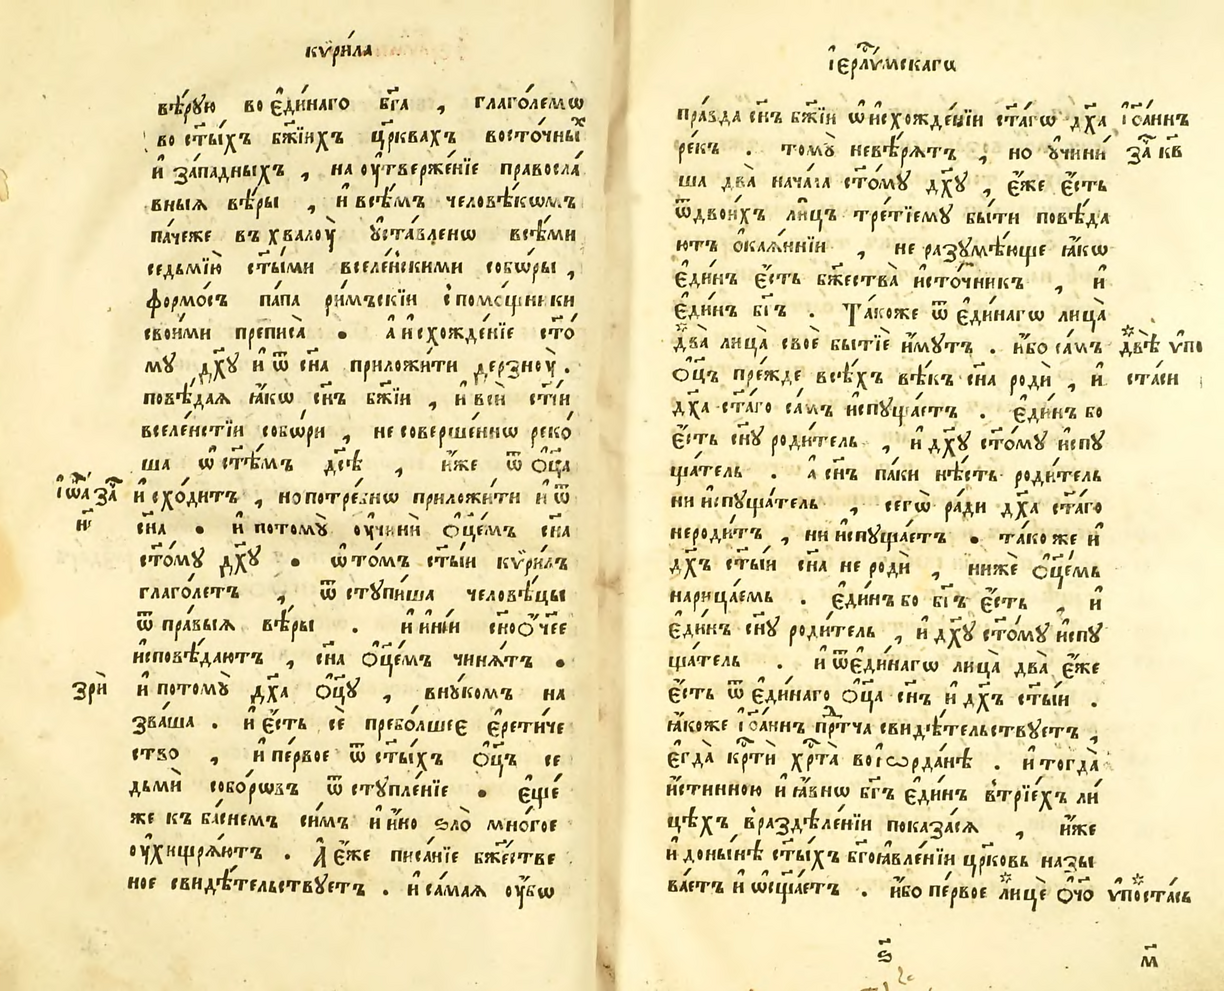 кѷри́ла
вѣ́рую во є҆ди́наго бг҃а , глаго́лемѡ
во ст҃ы́хъ бж҃їихъ цр҃квахъ восто́чныⷯ
и҆ за́падныхъ , на оу҆твержє́нїе правосла́
вныя вѣ́ры , и҆ всѣ́мъ человѣ́кѡмъ
па́чеже въ хвалоу̀ у҆ста́вленѡ всѣ́ми
седьмїю̀ ст҃ы́ми вселе́нскими собѡ́ры ,
формо́съ па́па ри́мъскїи с помо́щники
свои́ми преписа̀ • а и҆схожде́нїе ст҃о́
му дх҃у и҆ ѿ сн҃а приложи́ти дерзноу̀ .
повѣ́дая ꙗ҆́кѡ сн҃ъ бж҃їи , и҆ всѝ ст҃і́и
вселе́нстїи собѡ́ри , не соверше́ннѡ реко́
ша ѡ҆ ст҃ѣ́мъ дс҃ѣ , и҆́же ѿ ѻ҆ц҃а
і҆ѡа за҃
и҆схо́дитъ , но потре́бнѡ приложи́ти и҆ ѿ
н҃
сн҃а • и҆ потому̀ оу҆чинѝ ѻ҆ц҃е́мъ сн҃а
ст҃о́му дх҃у • ѡ҆ то́мъ ст҃ы́и кѷри́лъ
глаго́летъ , ѿступи́ша человѣ́цы
ѿ пра́выя вѣ́ры . и҆ и҆ні́и сн҃оѻ҆́чее
и҆сповѣ́даютъ , сн҃а ѻ҆ц҃е́мъ чиня́тъ •
зрѝ
и҆ потому̀ дх҃а ѻ҆ц҃у , вну́комъ на
зва́ша . и҆ є҆́сть сѐ пребо́лшеє є҆рети́че
ство , и҆ пе́рвое ѿ ст҃ы́хъ ѻ҆ц҃ъ се
дьмѝ собо́рѡвъ ѿступле́нїе • є҆щѐ
же къ ба́снемъ си́мъ и҆ и҆́но ѕло̀ мно́гое
оу҆хищря́ютъ . А҆ є҆́же писа́нїе бж҃е́стве
ное свидѣ́тельствуетъ . и҆ са́мая оу҆́бѡ
і҆ерⷭ҇ли́мскагѡ
пра́вда сн҃ъ бж҃їи ѡ҆ и҆схожде́нїи ст҃а́гѡ дх҃а
і҆ѡа́ннъ
ре́къ . тому̀ невѣ́рятъ , но у҆чини́
за҃ кв҃
ша два̀ нача́ла ст҃о́му дх҃у , є҆́же є҆́сть
ѿ двои́хъ ли́цъ тре́тїему бы́ти повѣ́да
ютъ ѻ҆кая́ннїи , не разумѣ́юще ꙗ҆́кѡ
є҆ди́нъ є҆́сть бж҃ества̀ и҆сто́чникъ , и҆
є҆ди́нъ бг҃ъ . Та́коже ѿ є҆ди́нагѡ лица̀
два̀ лица̀ своѐ бытїѐ и҆́мутъ . и҆́бо са́мъ
двѣ̀ ѵ҆по
ѻ҆ц҃ъ пре́жде всѣ́хъ вѣ́къ сн҃а родѝ , и҆
ста́си
дх҃а ст҃а́го са́мъ и҆спуща́етъ . є҆ди́нъ бо
є҆́сть сн҃у роди́тель , и҆ дх҃у ст҃о́му и҆спу
ща́тель . а сн҃ъ па́ки нѣ́сть роди́тель
ни и҆спуща́тель , сегѡ̀ ра́ди дх҃а ст҃а́го
нероди́тъ , ни и҆спуща́етъ • та́коже и҆
дх҃ъ ст҃ы́и сн҃а не родѝ , нижѐ ѻ҆ц҃е́мъ
нарица́емь . є҆ди́нъ бо бг҃ъ є҆́сть , и҆
є҆ди́нъ сн҃у роди́тель , и҆ дх҃у ст҃о́му и҆спу
ща́тель . и҆ ѿ є҆ди́нагѡ лица̀ два̀ є҆́же
є҆́сть ѿ є҆ди́наго ѻ҆ц҃а сн҃ъ и҆ дх҃ъ ст҃ы́и .
ꙗ҆́коже і҆ѻа́ннъ прⷣт҃ча свидѣ́тельствуетъ ,
є҆гда̀ крⷭ҇ти́ хрⷭ҇та̀ во і҆ѡрда́нѣ . и҆ тогда̀
и҆́стинною и҆ ꙗ҆́внѡ бг҃ъ є҆ди́нъ в трїе́хъ ли
цѣ́хъ в раздѣле́нїи показа́ся , и҆́же
и҆ доны́нѣ ст҃ы́хъ бг҃оꙗвле́нїи цр҃ковь назы
ва́етъ и҆ ѡ҆сщ҃а́етъ . и҆́бо пе́рвое лицѐ ѻ҆́ч҃о
ѵ҆поста́сь
ѕ҃
м҃